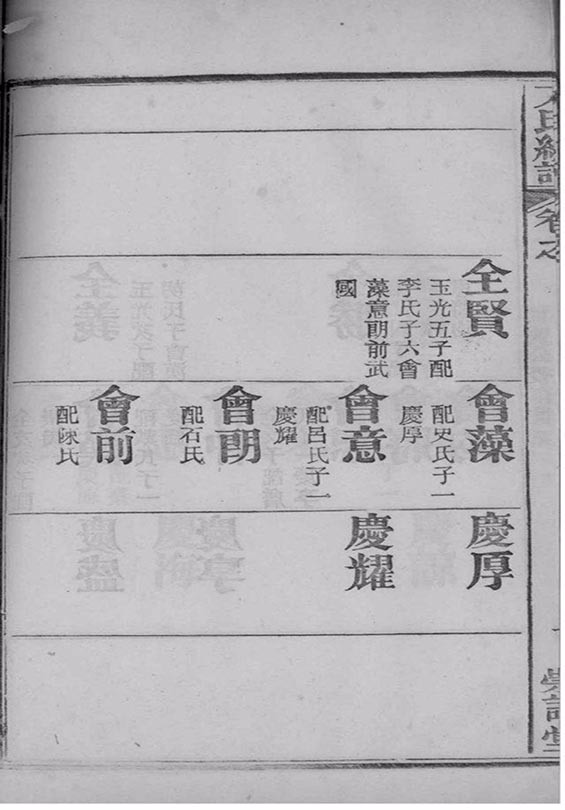 全賢
玉光五子配
李氏子六會
藻意朗前武
國
會藻
配史氏子一
慶厚
會意
配呂氏子一
慶耀
會朗
配石氏
會前
配陳氏
慶厚
慶耀